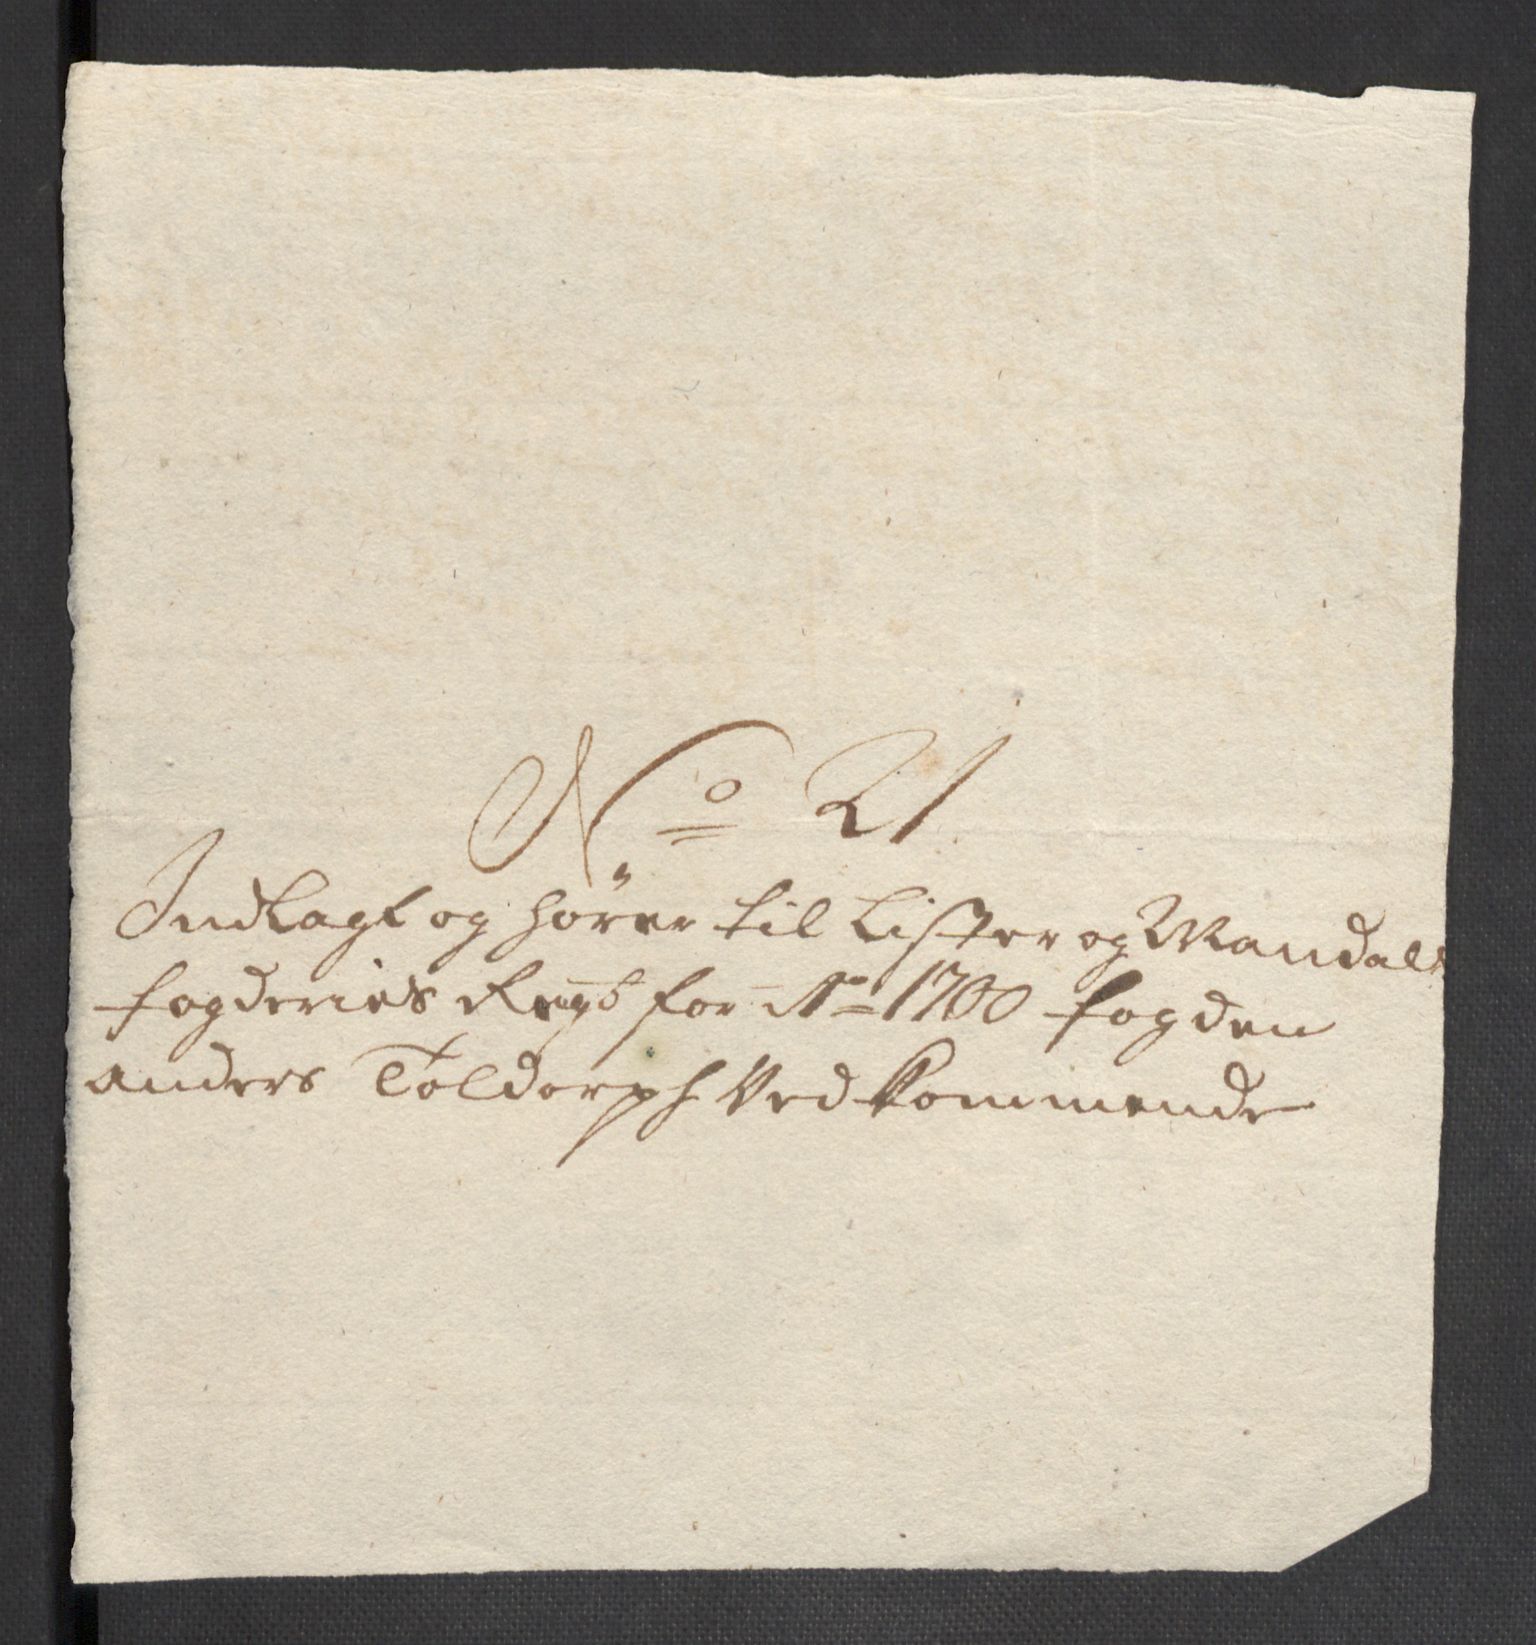 No 21
Indlagt og hörer til Lister og Mandals
fogderies Regsb for Ao 1700 fogden
anders Toldorph Ved kommende